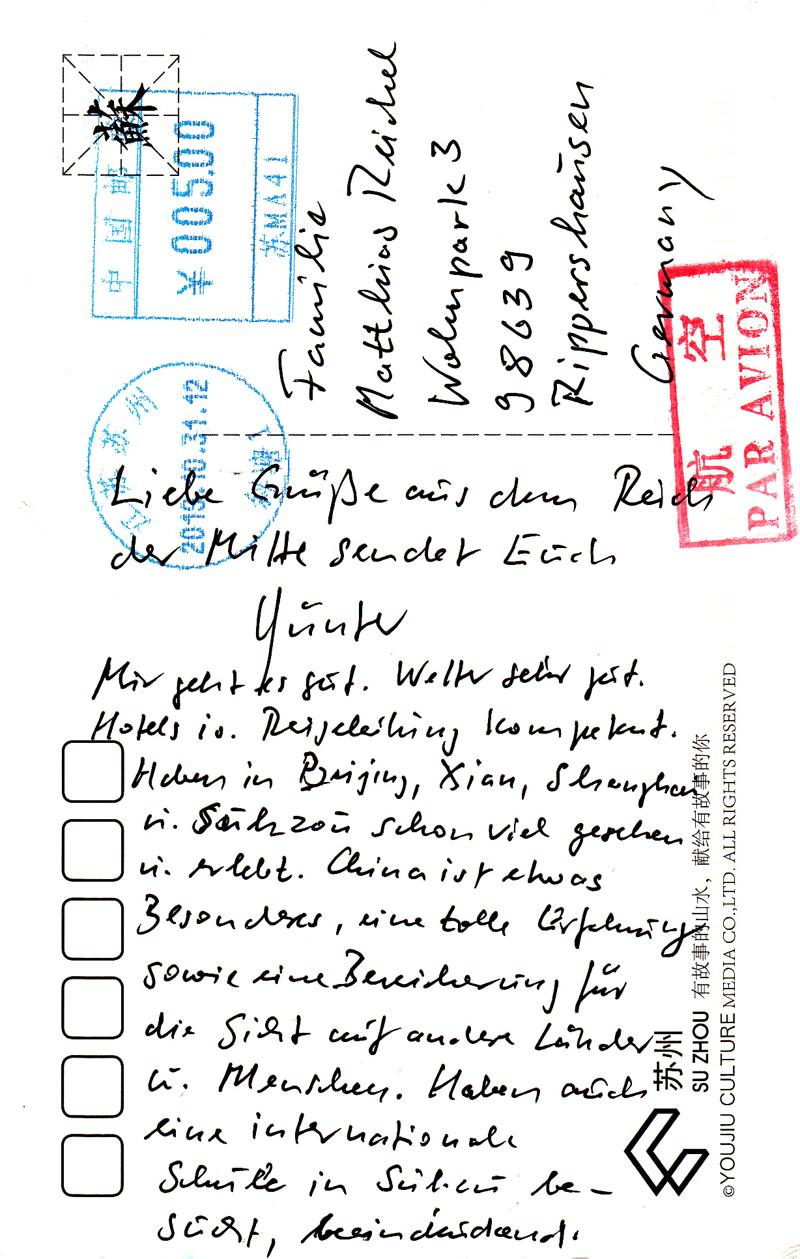 蘇
中国邮
¥005.00
苏MA41
Familie
Matthias Reichel
Wohnpark 3
98639
Rippershausen
Germany
航空
PAR AVION
江苏 苏州
10.31.12
Liebe Grüße aus dem Reich
der Mitte sendet Euch
Günter
Mir geht es gut. Wetter sehr gut.
Hotels io. Reiseleitung kompetent.
Haben in Beijing, Xian, Shanghai
u. schon viel gesehen
u. erlebt. China ist etwas
Besonderes, eine tolle Erfahrung
sowie eine Bereicherung für
die Sicht auf andere Länder
u. Menschen. Haben auch
eine internationale
Schule in be-
sucht, beeindruckend.
苏州
SU ZHOU 有故事的山水，献给有故事的你
©YOUJIU CULTURE MEDIA CO.,LTD. ALL RIGHTS RESERVED